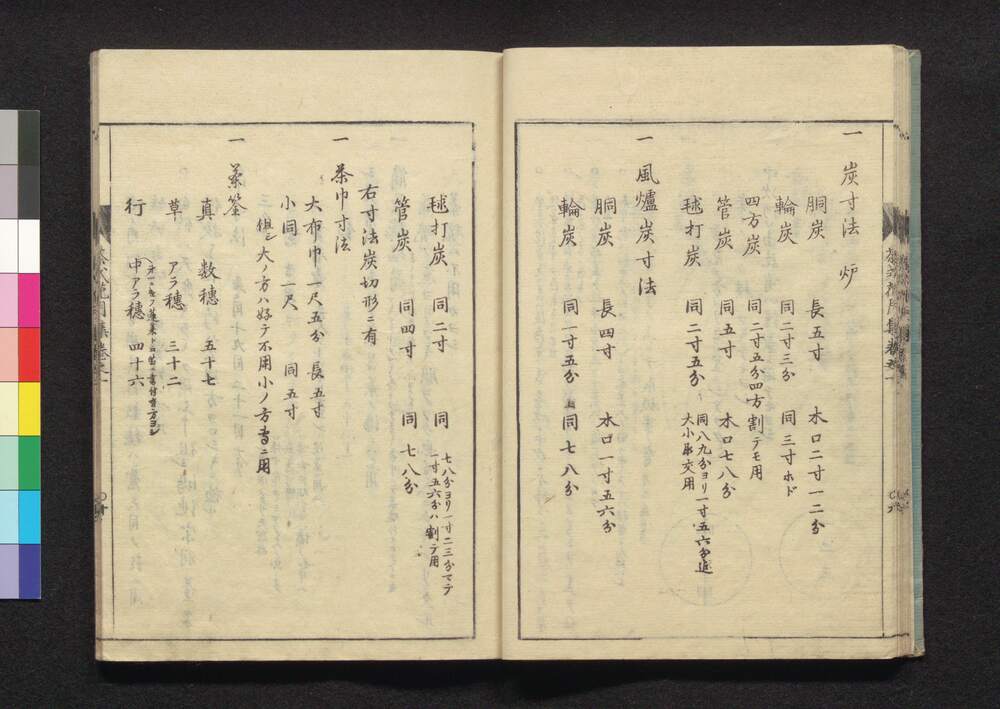 一 炭寸法 炉
胴炭 長五寸 木口二寸一二分
輪炭 同二寸三分 同三寸ホド
四方炭 同二寸五分四方割テモ用
管炭 同五寸 木口七八分
毬打炭 同二寸五分 同八九分ヨリ一寸五六分迄
大小取交用
一 風爐炭寸法
胴炭 長四寸 木口一寸五六分
輪炭 同一寸五分 同七八分
毬打炭 同二寸 同 七八分ヨリ一寸二三分マテ
一寸五六分ハ割テ用
管炭 同四寸 同七八分
右寸法炭切形ニ有
一 茶巾寸法
大布巾一尺五分 長五寸
小同 一尺ニ 同五寸
但シ大ノ方ハ好テ不用小ノ方専ニ用
一 茶筌
真 数穂 五十七
草 アラ穂 三十二
行 中アラ穂 四十六